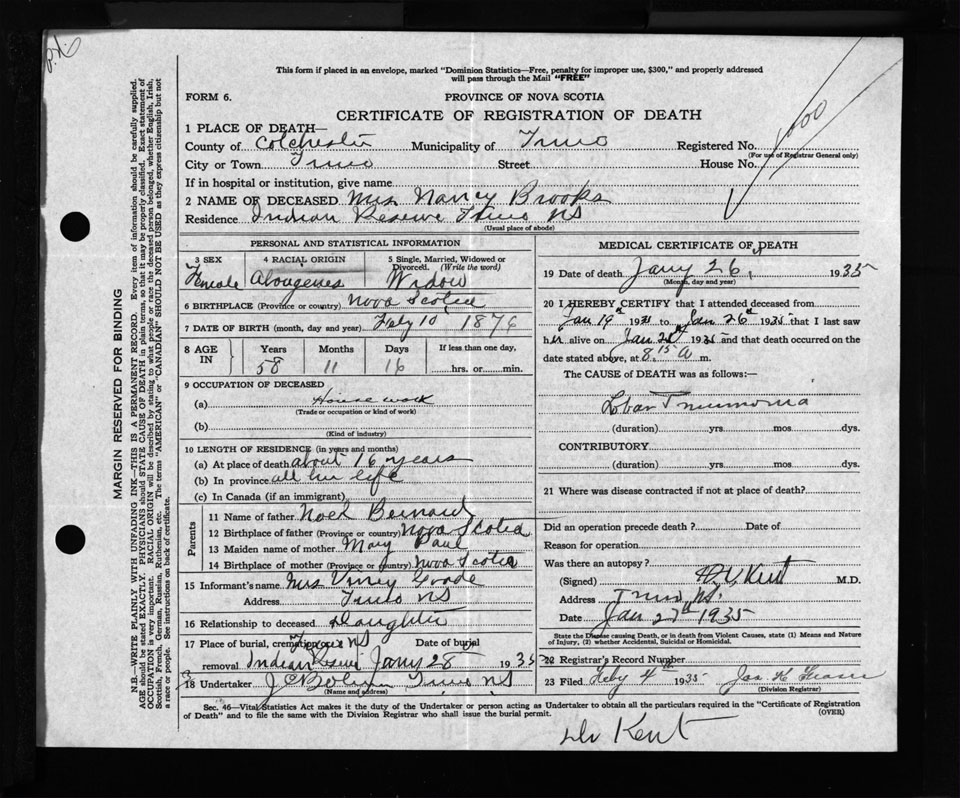 This form if placed in an envelope, marked "Dominion Statistics—Free, penalty for improper use, $300," and properly addressed
will pass through the Mail "FREE"
FORM 6.
PROVINCE OF NOVA SCOTIA
CERTIFICATE OF REGISTRATION OF DEATH
1000
1 PLACE OF DEATH—
County of Colchester Municipality of Truro Registered No.
(For use of Registrar General only)
City or Town Truro Street House No.
If in hospital or institution, give name
2 NAME OF DECEASED Mrs Nancy Brooks
Residence Indian Reserve Truro NS
(Usual place of abode)
PERSONAL AND STATISTICAL INFORMATION
3 SEX 4 RACIAL ORIGIN 5 Single, Married, Widowed or
Divorced. (Write the word)
Female Abougenes Widow
6 BIRTHPLACE (Province or country) Nova Scotia
7 DATE OF BIRTH (month, day and year) 10 1876
8 AGE IN Years Months Days If less than one day,
58 11 16 hrs. or min.
9 OCCUPATION OF DECEASED
(a) House work
(Trade or occupation or kind of work)
(b)
(Kind of industry)
10 LENGTH OF RESIDENCE (in years and months)
(a) At place of death about 16 years
(b) In province all her life
(c) In Canada (if an immigrant)
Parents
11 Name of father Noel Bernard
12 Birthplace of father (Province or country) Nova Scotia
13 Maiden name of mother Mary Paul
14 Birthplace of mother (Province or country) Nova Scotia
15 Informant's name Mrs Goode
Address Truro NS
16 Relationship to deceased Daughter
17 Place of burial, cremation or Truro NS Date of burial
removal Indian Reserve Jany 28 1935
18 Undertaker Truro NS
(Name and address)
MEDICAL CERTIFICATE OF DEATH
19 Date of death Jany 26, 1935
(Month, day and year)
20 I HEREBY CERTIFY that I attended deceased from
Jan 19th 1935 to Jan 26th 1935 that I last saw
her alive on Jan 1935 and that death occurred on the
date stated above, at 8.15 A m.
The CAUSE of DEATH was as follows:—
Lobar Pneumonia
(duration) yrs. mos. dys.
CONTRIBUTORY
(duration) yrs. mos. dys.
21 Where was disease contracted if not at place of death?
Did an operation precede death? Date of
Reason for operation
Was there an autopsy?
(Signed) Kent M.D.
Address Truro NS.
Date Jan 27th 1935
State the Disease causing Death, or in death from Violent Causes, state (1) Means and Nature
of Injury, (2) whether Accidental, Suicidal or Homicidal.
22 Registrar's Record Number
23 Filed Feby 4th 1935 Jas
(Division Registrar)
Sec. 46—Vital Statistics Act makes it the duty of the Undertaker or person acting as Undertaker to obtain all the particulars required in the "Certificate of Registration
of Death" and to file the same with the Division Registrar who shall issue the burial permit.
(OVER)
Dr Kent
MARGIN RESERVED FOR BINDING
N.B.—WRITE PLAINLY WITH UNFADING INK—THIS IS A PERMANENT RECORD. Every item of information should be carefully supplied.
AGE should be stated EXACTLY. PHYSICIANS should STATE CAUSE OF DEATH in plain terms, so that it may be properly classified. Exact statement of
OCCUPATION is very important. RACIAL ORIGIN will be described by stating to what people or race the deceased person belonged, whether English, Irish,
Scottish, French, German, Russian, Ruthenian, etc. The terms "AMERICAN" or "CANADIAN" SHOULD NOT BE USED as they express citizenship but not
a race or people. See instructions on back of certificate.